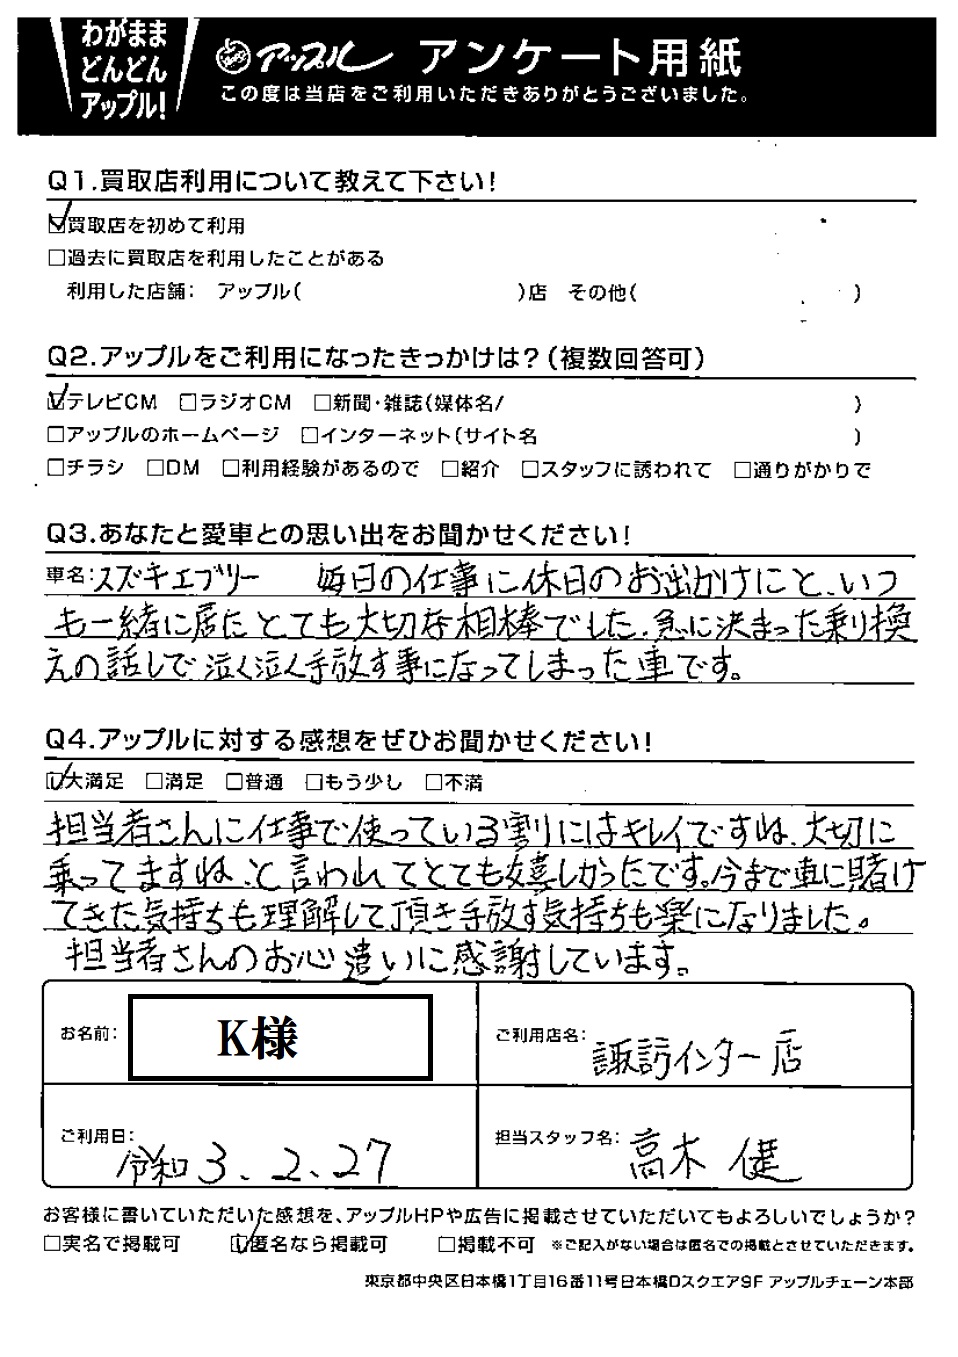 わがまま
どんどん
アップル!
アップル アンケート用紙
この度は当店をご利用いただきありがとうございました。
Q1.買取店利用について教えて下さい!
☑買取店を初めて利用
□過去に買取店を利用したことがある
利用した店舗: アップル( )店 その他( )
Q2.アップルをご利用になったきっかけは?(複数回答可)
☑テレビCM □ラジオCM □新聞・雑誌(媒体名/ )
□アップルのホームページ □インターネット(サイト名 )
□チラシ □DM □利用経験があるので □紹介 □スタッフに誘われて □通りがかりで
Q3.あなたと愛車との思い出をお聞かせください!
車名:スズキエブリー 毎日の仕事に休日のお出かけにと、いつ
も一緒に居たとても大切な相棒でした。急に決まった乗り換
えの話しで泣く泣く手放す事になってしまった車です。
Q4.アップルに対する感想をぜひお聞かせください!
☑大満足 □満足 □普通 □もう少し □不満
担当者さんに仕事で使っている割にはキレイですね、大切に
乗ってますね、と言われてとても嬉しかったです。今まで車に賭け
てきた気持ちも理解して頂き手放す気持ちも楽になりました。
担当者さんのお心遣いに感謝しています。
お名前: K様
ご利用店名: 諏訪インター店
ご利用日: 令和3、2、27
担当スタッフ名: 高木 健
お客様に書いていただいた感想を、アップルHPや広告に掲載させていただいてもよろしいでしょうか?
□実名で掲載可 ☑匿名なら掲載可 □掲載不可 ※ご記入がない場合は匿名での掲載とさせていただきます。
東京都中央区日本橋1丁目16番11号日本橋Dスクエア9F アップルチェーン本部